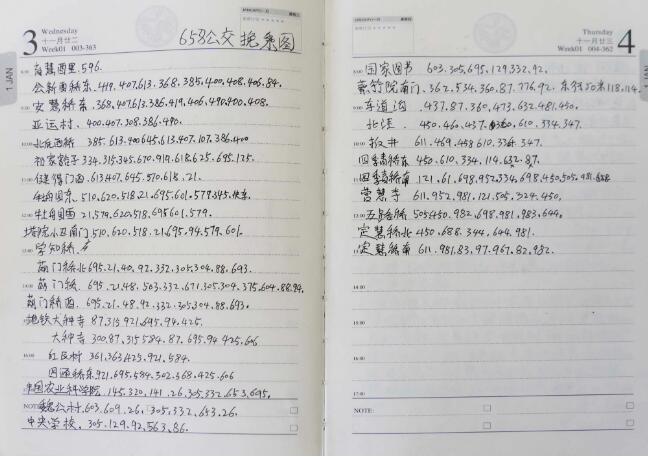 3
Wednesday
十一月廿二
Week01 003-363
1 JAN
653公交换乘图
育慧西里.596.
公新南桥东.419.407.613.368.385.400.408.406.84.
安慧桥东.368.407.613.386.419.406.490.400.408.
亚运村.400.407.308.386.490.
北辰西桥 385.613.400.645.613.407.107.386.400
祁家豁子334.315.345.670.919.618.625.695.125.
健德门西.613.407.645.570.618.21.
牡丹园东.510.620.518.21.695.601.579.345.快车.
牡丹园西 21.579.620.518.695.601.579.
塔院小区南门510.620.518.21.695.94.579.601.
学知桥.
蓟门桥北695.21.40.92.332.305.304.88.693.
蓟门桥.695.21.48.503.332.671.305.304.375.604.88.94.
蓟门桥西.695.21.48.92.332.305.304.88.693.
地铁大钟寺 87.315.921.695.94.425.
大钟寺 300.87.315.584.87.695.94.425.606
红民村 361.363.425.921.584.
四通桥东921.695.584.302.368.425.606
中国农业科学院.145.320.141.26.305.332.653.695.
NOTE:
魏公村.603.609.26.305.332.653.26.
中央学校.305.129.92.563.86.
Thursday
十一月廿三
Week01 004-362
4
国家图书 603.305.695.129.332.92.
紫竹院南门.362.534.360.87.776.92.东行50米118.114.
车道沟.437.87.360.473.632.481.450.
北洼.450.460.437.360.610.334.347.
板井 611.469.458.610.334.347.
四季青桥东 450.610.334.114.632.87.
四季青桥南 121.61.698.952.334.698.450.505.981.
营慧寺 611.952.981.121.505.324.450.
五路居桥 505.450.982.698.981.983.644.
定慧桥北 450.688.344.644.981.
定慧桥南 611.981.83.97.967.82.982.
14:00
15:00
16:00
17:00
NOTE: